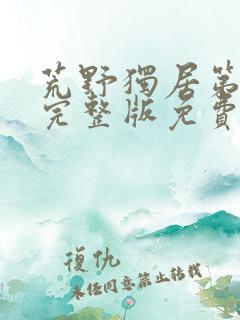 荒野獨居第
完整版免費
復仇
未经同意禁止转载